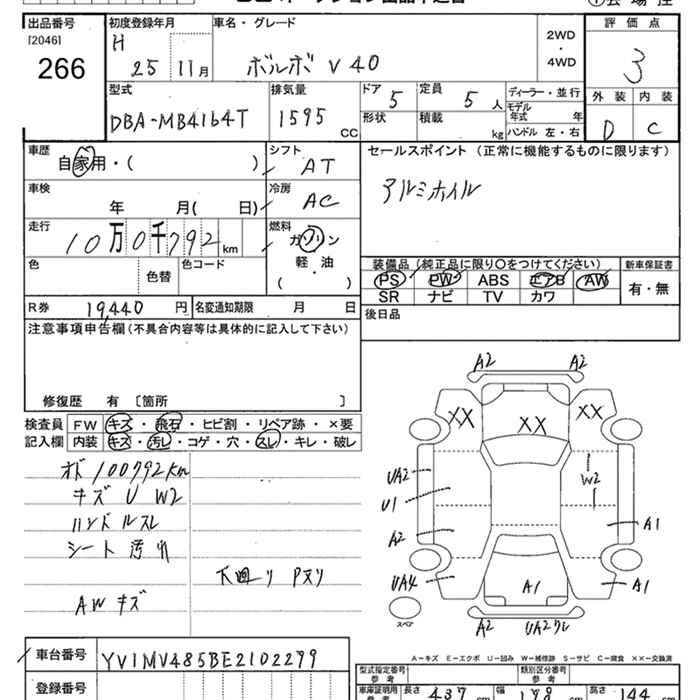 出品番号
[2046]
266
初度登録年月
H
25 11月
車名・グレード
ボルボ V40
2WD
・
4WD
評価点
3
外装 内装
D C
型式
DBA-MB4164T
排気量
1595
CC
ドア
5
定員
5人
ディーラー・並行
モデル
年式 年
形状
積載
kg
ハンドル 左・右
車歴
自家用・( )
シフト
AT
セールスポイント (正常に機能するものに限ります)
アルミホイル
車検
年 月( 日)
冷房
AC
走行
10万0千792 km
燃料
ガソリン
軽・油
( ・ )
色
色替
色コード
装備品 (純正品に限り○をつけてください)
新車保証書
PS PW ABS エアB AW
有・無
SR ナビ TV カワ
R券 19,440 円
名変通知期限 月 日
後日品
注意事項申告欄 (不具合内容等は具体的に記入して下さい)
修復歴 有 〔箇所 〕
検査員
記入欄
FW キズ・飛石・ヒビ割・リペア跡・×要
内装 キズ・汚レ・コゲ・穴・スレ・キレ・破レ
オド 100792km
キズ U W2
ハンドルスレ
シート 汚れ
下廻り Pヌリ
AW キズ
A2 A2
XX XX XX
UA2
U1
W2
A2
A1
UA4
A1
A1
スペア
A2 UA2ワレ
A-キズ E-エクボ U-凹み W-補修跡 S-サビ C-腐食 XX-交換済
車台番号 YV1MV485BE2102279
登録番号
型式指定番号
参考
類別区分番号
参考
車庫証明用
参考
長さ 437 cm
幅 178 cm
高さ 144 cm